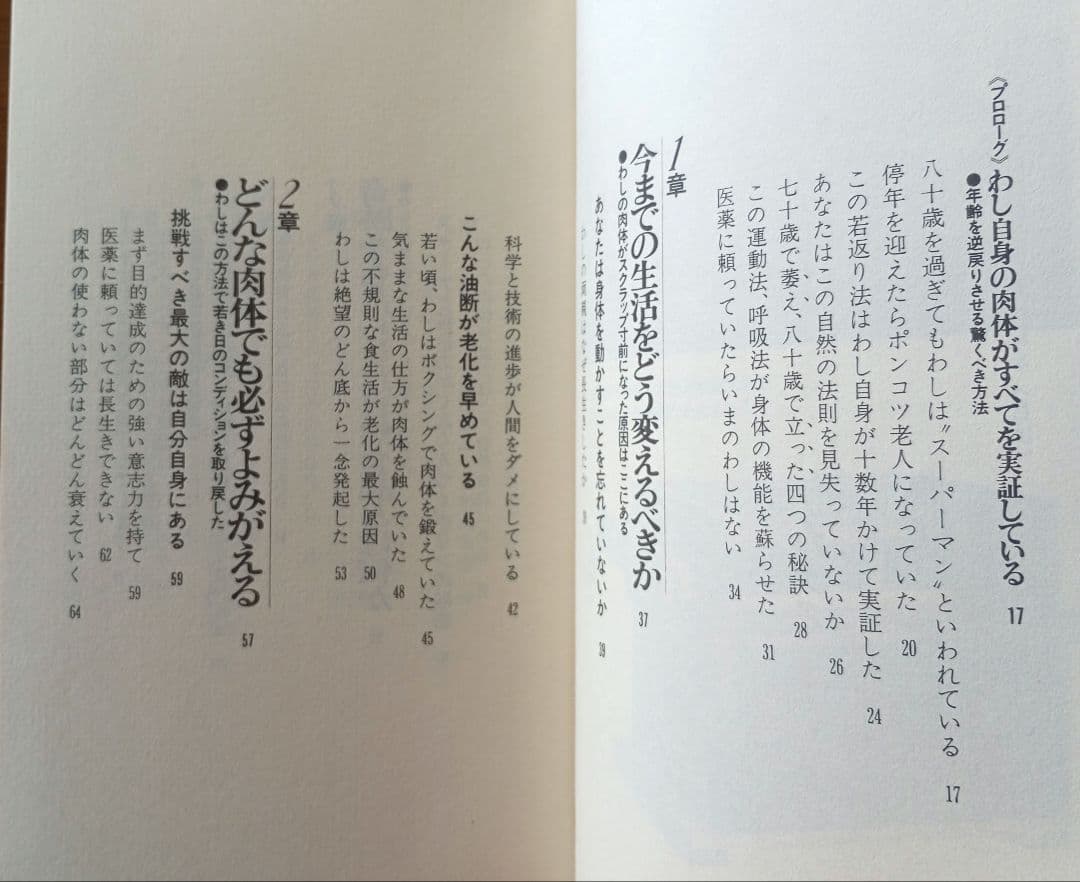 《プロローグ》わし自身の肉体がすべてを実証している 17
●年齢を逆戻りさせる驚くべき方法
八十歳を過ぎてもわしは〝スーパーマン〟といわれている 17
停年を迎えたらポンコツ老人になっていた 20
この若返り法はわし自身が十数年かけて実証した 24
あなたはこの自然の法則を見失っていないか 26
七十歳で萎え、八十歳で立った四つの秘訣 28
この運動法、呼吸法が身体の機能を蘇らせた 31
医薬に頼っていたらいまのわしはない 34
1章
今までの生活をどう変えるべきか 37
●わしの肉体がスクラップ寸前になった原因はここにある
あなたは身体を動かすことを忘れていないか 39
科学と技術の進歩が人間をダメにしている 42
こんな油断が老化を早めている 45
若い頃、わしはボクシングで肉体を鍛えていた 45
気ままな生活の仕方が肉体を蝕んでいた 48
この不規則な食生活が老化の最大原因 50
わしは絶望のどん底から一念発起した 53
2章
どんな肉体でも必ずよみがえる 57
●わしはこの方法で若き日のコンディションを取り戻した
挑戦すべき最大の敵は自分自身にある 59
まず目的達成のための強い意志力を持て 59
医薬に頼っていては長生きできない 62
肉体の使わない部分はどんどん衰えていく 64